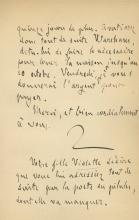 quinze jours de plus. Avertissez
donc tout de suite
de faire le nécessaire
pour avoir la maison jusqu'au
10 octobre. Vendredi, je vous
donnerai l'argent pour
payer.
Merci, et bien cordialement
à vous.
Votre fille Violette désire
que vous lui adressiez tout de
suite par la poste
dont elle va manquer.